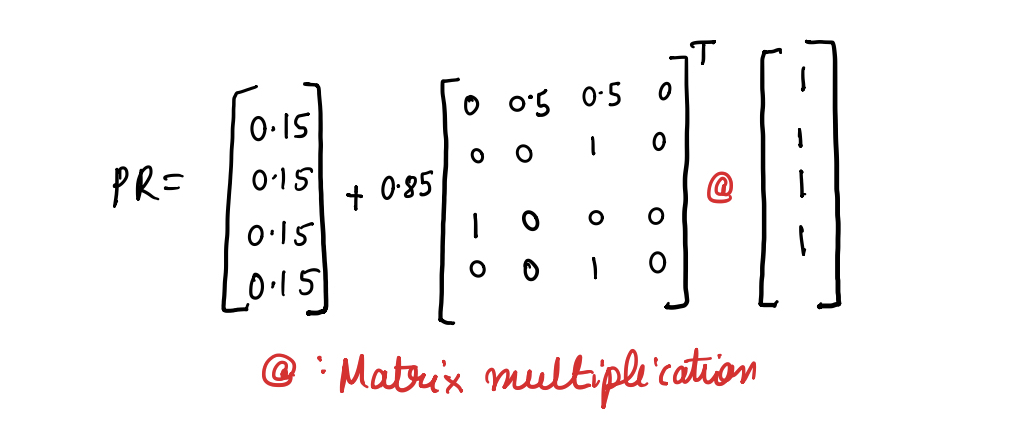 PR = [0.15 0.15 0.15 0.15] + 0.85 [0 0.5 0.5 0 0 0 1 0 1 0 0 0 0 0 1 0]^T @ [1 1 1 1]
@ : Matrix multiplication